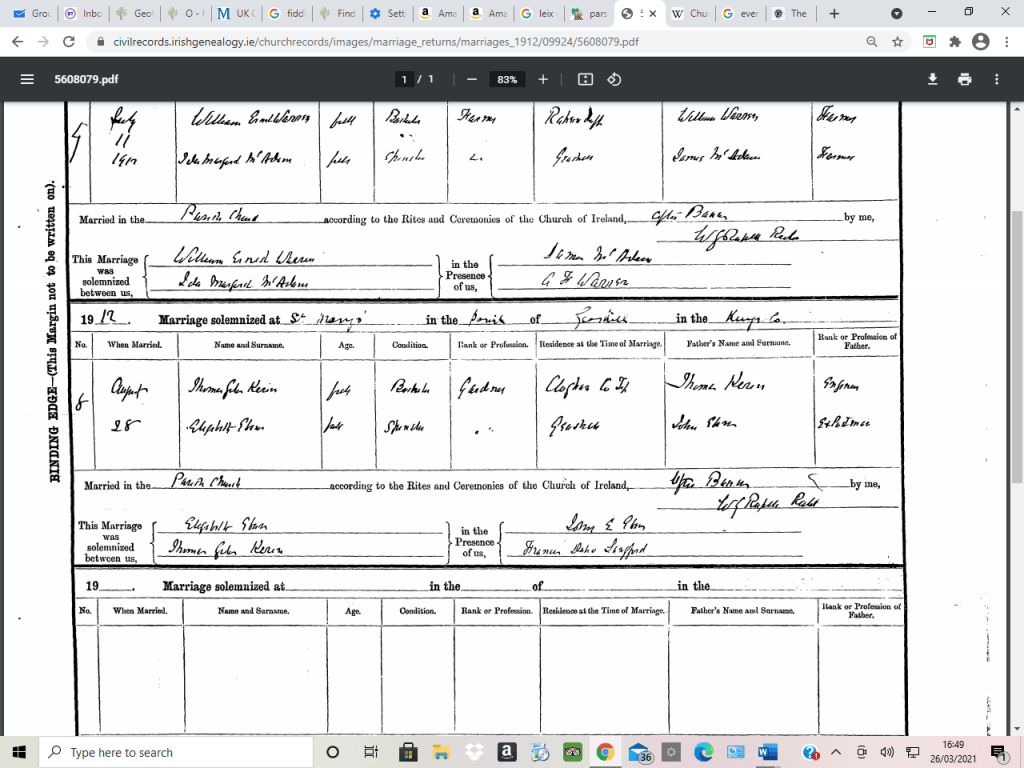 Grou
Inbo
Geo
O -
UK
fiddl
Find
Sett
Ama
Ama
leix
pars
S
Chu
ever
The
civilrecords.irishgenealogy.ie/churchrecords/images/marriage_returns/marriages_1912/09924/5608079.pdf
5608079.pdf
1 / 1
83%
BINDING EDGE—(This Margin not to be written on).
July William Ernest Warren full Bachelor Farmer William Warren Farmer
11
1912 Ida Margaret McAdam full Spinster Geashill James McAdam Farmer
Married in the Parish Church according to the Rites and Ceremonies of the Church of Ireland, after Banns by me,
This Marriage was solemnized between us,
William Ernest Warren
Ida Margaret McAdam
in the Presence of us,
James McAdam
G F Warren
1912. Marriage solemnized at St Mary's in the Parish of Geashill in the Kings Co.
No. When Married. Name and Surname. Age. Condition. Rank or Profession. Residence at the Time of Marriage. Father's Name and Surname. Rank or Profession of Father.
8 August Thomas Giles Kerin full Bachelor Gardner Thomas Kerin
28 Elizabeth full Spinster Geashill John
Married in the Parish Church according to the Rites and Ceremonies of the Church of Ireland, after Banns by me,
This Marriage was solemnized between us,
Elizabeth
Thomas Giles Kerin
in the Presence of us,
John E
Frances
19 . Marriage solemnized at in the of in the
No. When Married. Name and Surname. Age. Condition. Rank or Profession. Residence at the Time of Marriage. Father's Name and Surname. Rank or Profession of Father.
Type here to search
36
16:49
26/03/2021
1